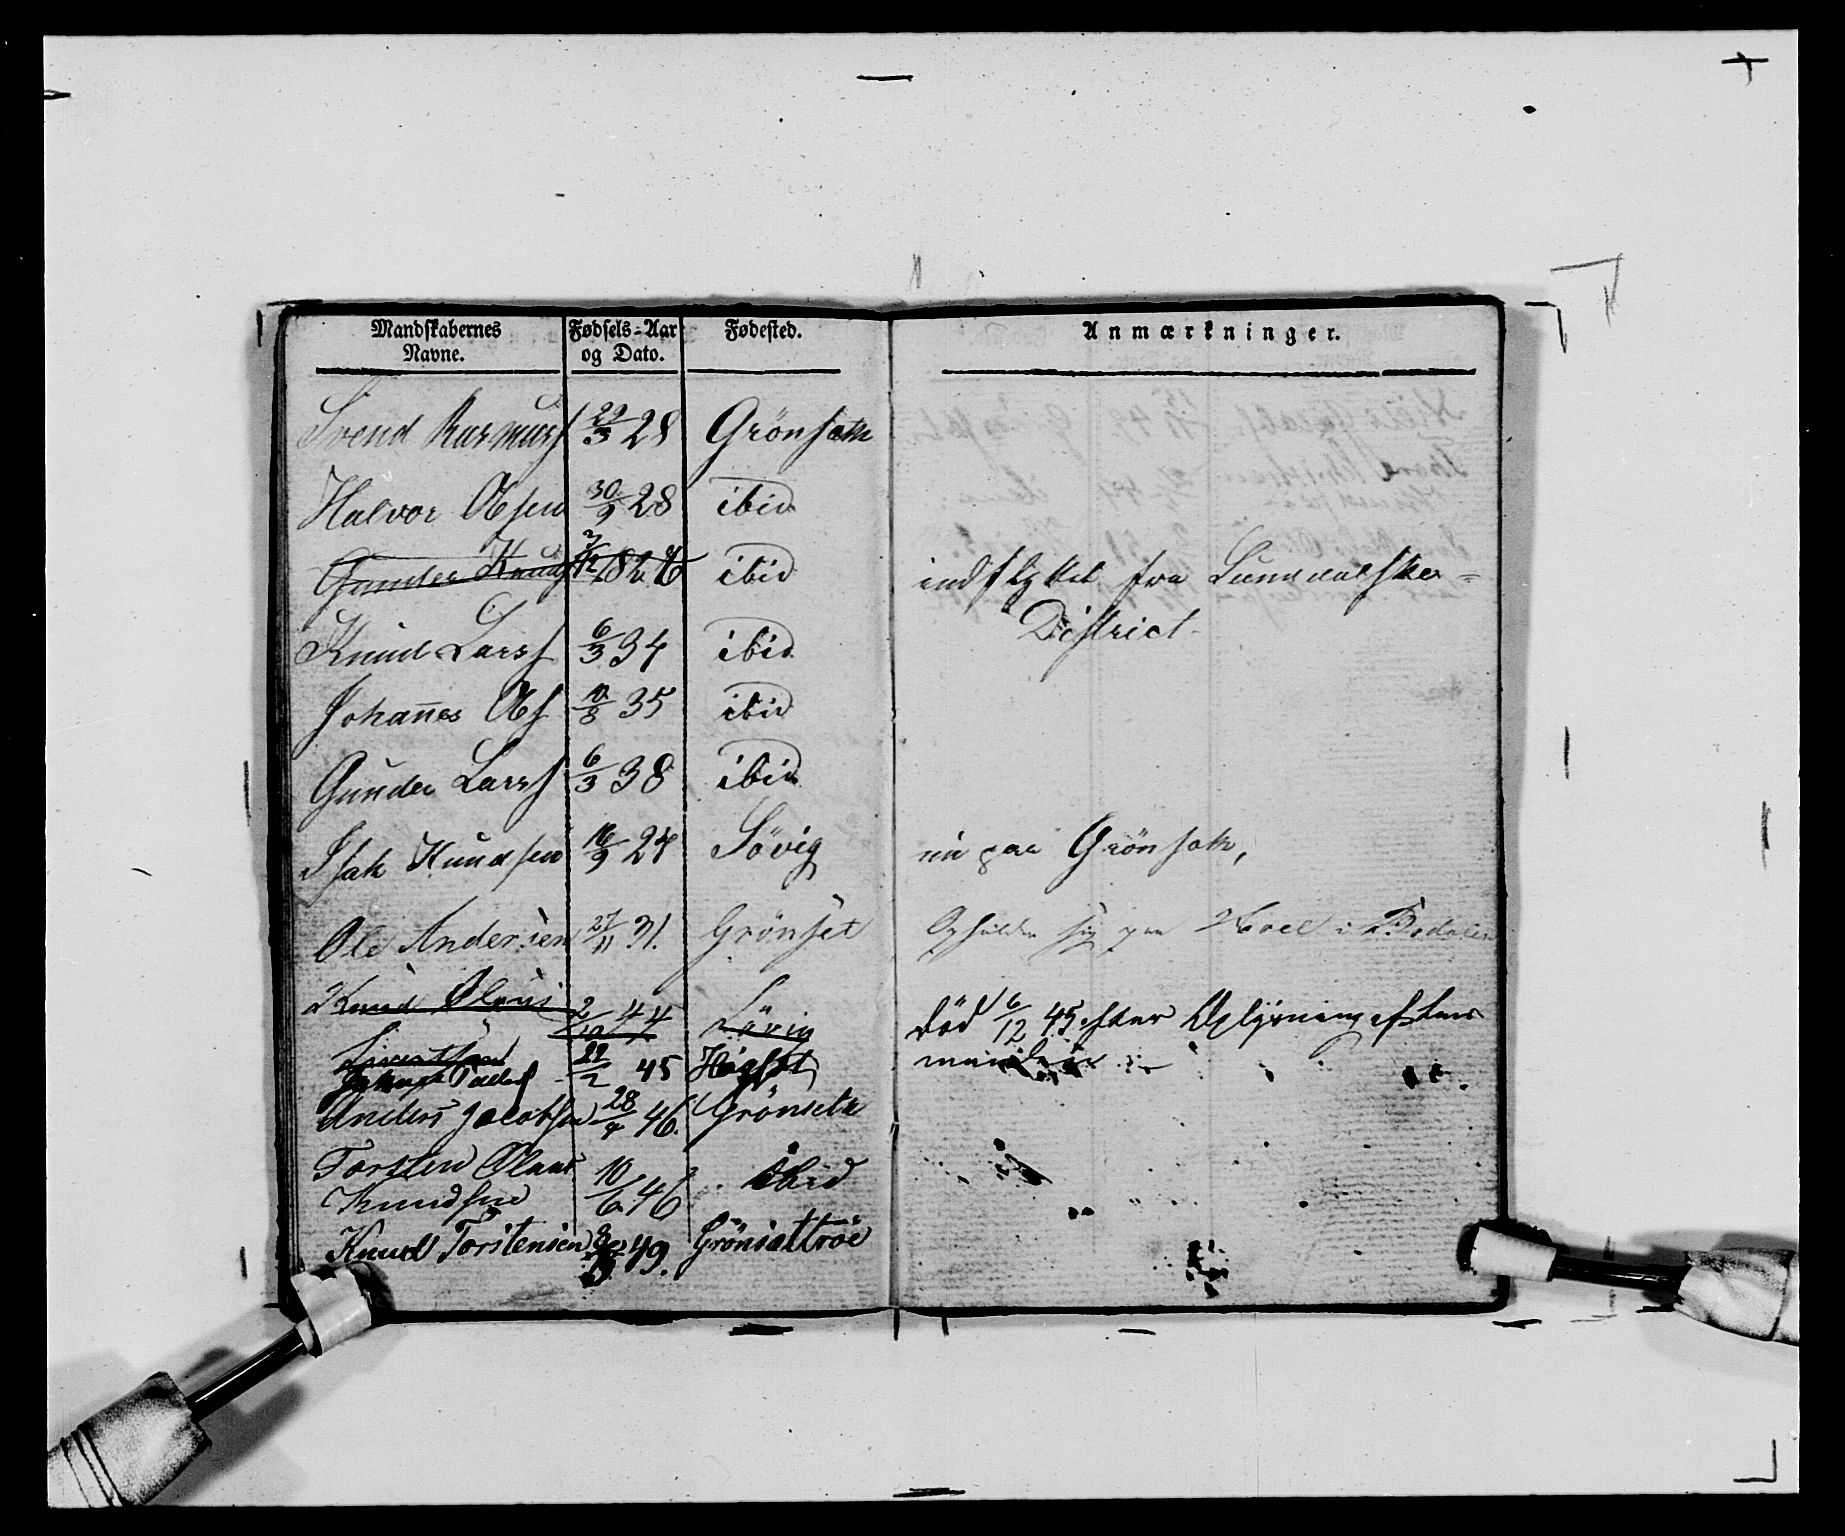 Mandskabernes Navne. Fødsels-Aar og Dato. Fødested. Anmærkninger.
Svend Rasmuss 29/3 28 Grönsæth
Halvor Olsen 30/9 28 ibid
Gunder Knuds 7/12 182 ibid indflyttet fra Lunddalske-
District
Knud Larss 6/3 34 ibid
Johannes Ols 10/8 35 ibid
Gunder Larss 6/3 38 ibid
Isak Knudsen 16/9 24 Sövig nu paa Grönsæth,
Ole Andersen 27/11 31. Grönset Opholder sig paa i
Knud Olaus 2/10 44 Sövig död 6/12 45 efter Oplysning af Lens
Sivertsen manden
22/2 45 Hagset
Anders Jacobsen 28/4 46. Grönseth
Torsten Olaus
Knudsen 10/6 46 ibid
Knud Torstensen 49. Grönsættröe